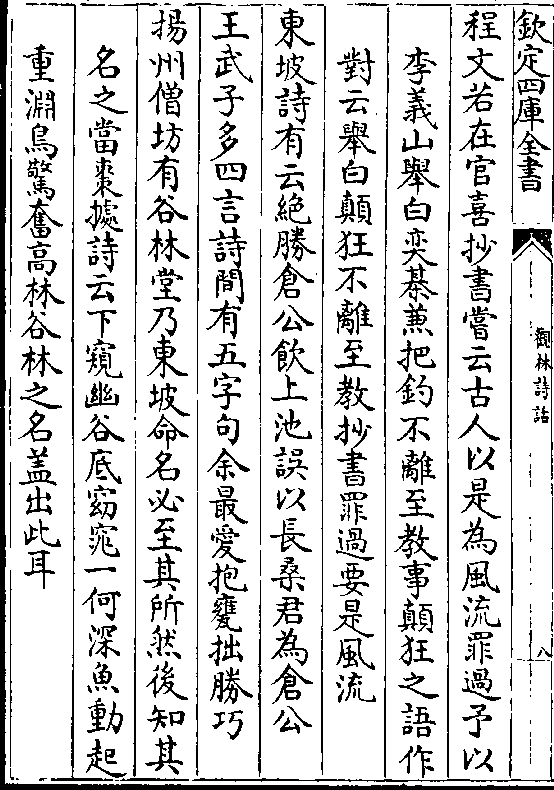 欽定四庫全書
觀林詩話
八
程文若在官喜抄書嘗云古人以是為風流罪過予以
李義山舉白奕棊兼把釣不離至教事顛狂之語作
對云舉白顛狂不離至教抄書罪過要是風流
東坡詩有云絶勝倉公飲上池誤以長桑君為倉公
王武子多四言詩間有五字句余最愛抱甕拙勝巧
揚州僧坊有谷林堂乃東坡命名必至其所然後知其
名之當棗據詩云下窺幽谷底窈窕一何深魚動起
重淵鳥驚奮高林谷林之名盖出此耳